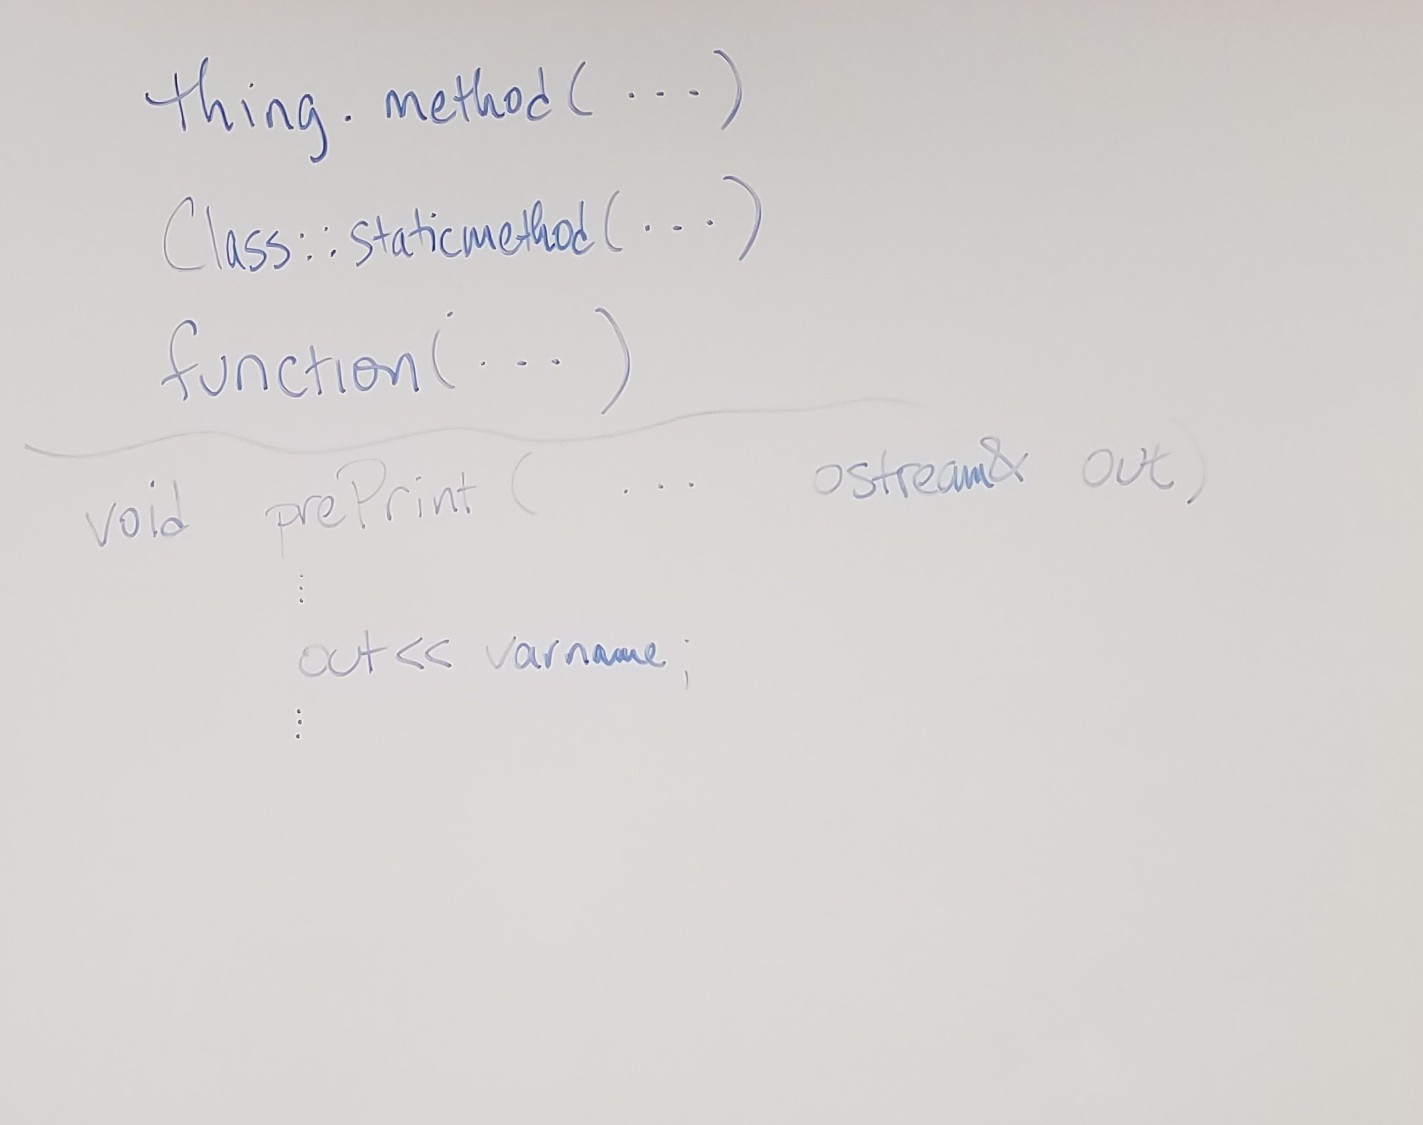 thing.method(...)
Class::staticmethod(...)
function(...)
void prePrint( ... ostream& out)
⋮
out<< varname;
⋮